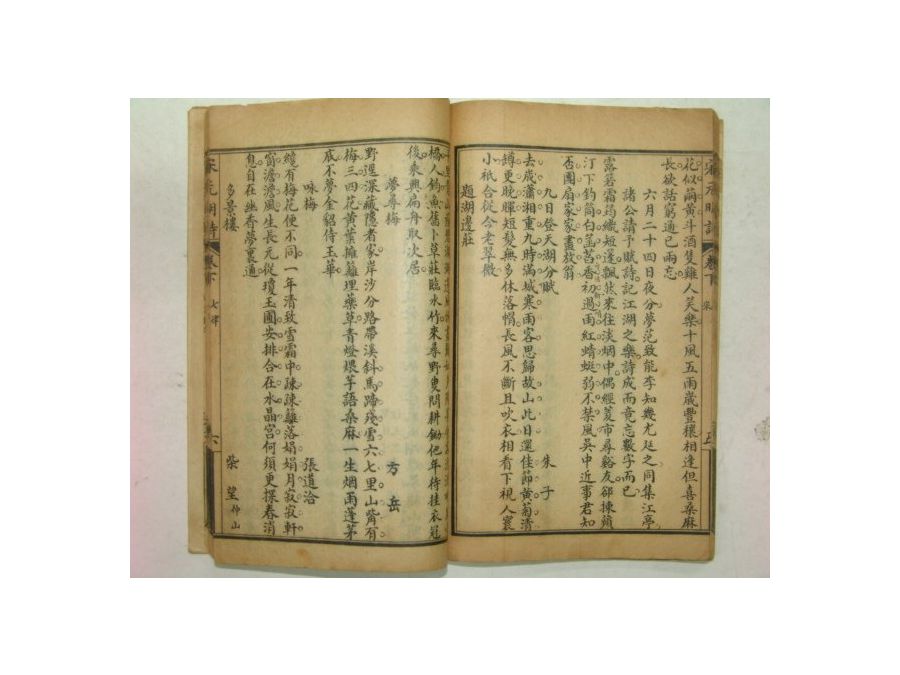 花似萠黄斗酒隻雞人笑樂十風五雨歲豐穰相逢但喜桑麻
長欲話窮通已兩忘
六月二十四日夜分夢范致能李知幾尤延之同集江亭
諸公請予賦詩記江湖之樂詩成而竟忘數字而已
露箬霜筠織短篷飄然來往淡烟中偶經菱市尋谿友卻揀蘋
汀下釣筒白菡萏香初過雨紅蜻蜓弱不禁風吳中近事君知
否團扇家家畫放翁
九日登天湖分賦 朱子
去歲瀟湘重九時滿城寒雨客思歸故山此日還佳節黄菊清
罇更晚暉短髮無多休落帽長風不斷且吹衣相看下視人寰
小秖合從今老翠微
題湖邊莊
橘人釣魚舊卜草莊臨水竹來尋野叟問耕鋤他年待挂衣冠
後乘興扁舟取次居
夢尋梅 方岳
野逕深藏隱者家岸沙分路帶溪斜馬蹄殘雪六七里山觜有
梅三四花黄葉擁籬埋藥草青燈煨芋語桑麻一生烟雨蓬茅
底不夢金貂侍玉華
咏梅 張道洽
纔有梅花便不同一年清致雪霜中疎疎籬落娟娟月寂寂軒
窗澹澹風生長元從瓊玉圃安排合在水晶宮何須更探春消
息自在幽香夢裏通
多景樓 柴望仲山
宋元明詩 卷下 七律 六